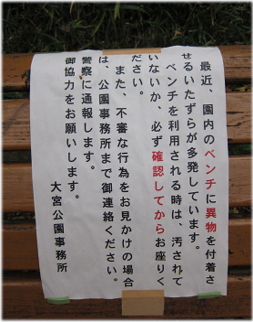 最近、園内のベンチに異物を付着さ
せるいたずらが多発しています。
ベンチを利用される時は、汚されて
いないか、必ず確認してからお座りく
ださい。
また、不審な行為をお見かけの場合
は、公園事務所まで御連絡ください。
警察に通報します。
御協力をお願いします。
大宮公園事務所